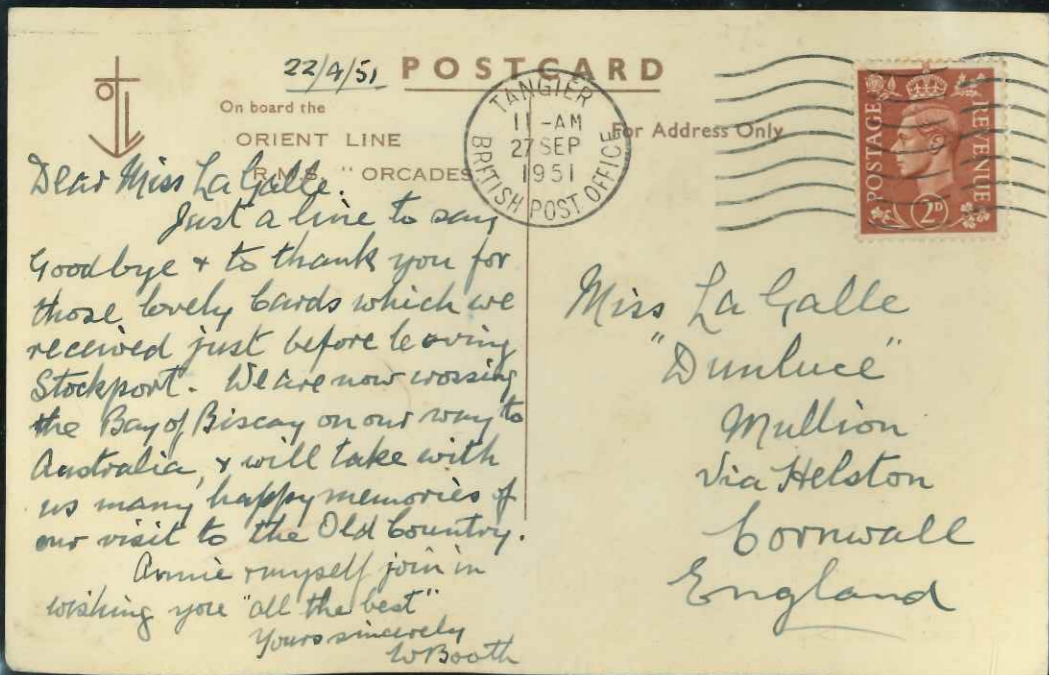 22/9/51 POSTCARD
On board the
ORIENT LINE
R.M.S. "ORCADES
For Address Only
TANGIER
11-AM
27 SEP
1951
BRITISH POST OFFICE
POSTAGE
REVENUE
2D
Dear Miss La Galle.
Just a line to say
Goodbye & to thank you for
those lovely Cards which we
received just before leaving
Stockport. We are now crossing
the Bay of Biscay on our way to
Australia, & will take with
us many happy memories of
our visit to the Old Country.
Annie & myself join in
wishing you "all the best"
Yours sincerely
W Booth
Miss La Galle
"Dunluce"
Mullion
Via Helston
Cornwall
England